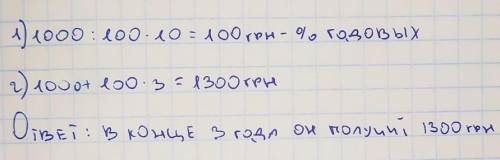 1) 1000 : 100 · 10 = 100 грн - % годовых
2) 1000 + 100 · 3 = 1300 грн
Ответ: в конце 3 года он получит 1300 грн